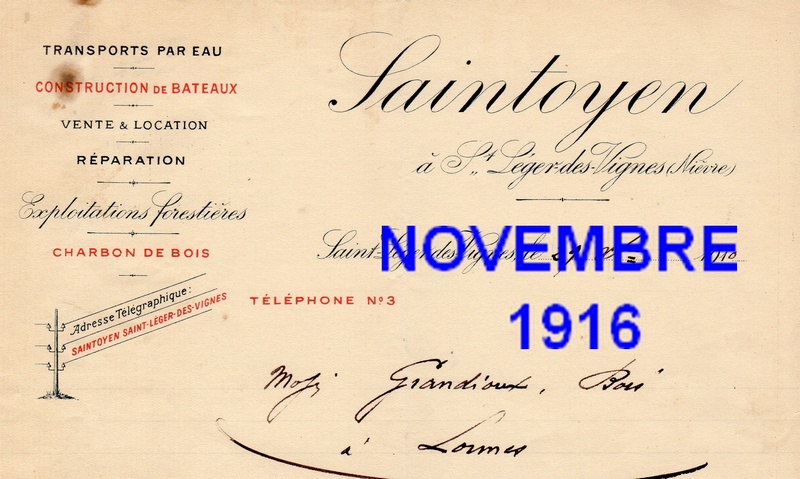 TRANSPORTS PAR EAU
CONSTRUCTION DE BATEAUX
VENTE & LOCATION
RÉPARATION
Exploitations forestières
CHARBON DE BOIS
Adresse Télégraphique:
SAINTOYEN SAINT-LÉGER-DES-VIGNES
Saintoyen
à St Léger-des-Vignes (Nièvre)
Saint-Léger-des-Vignes, le
NOVEMBRE
1916
TÉLÉPHONE No 3
Grandioux, Bois
à Lormes